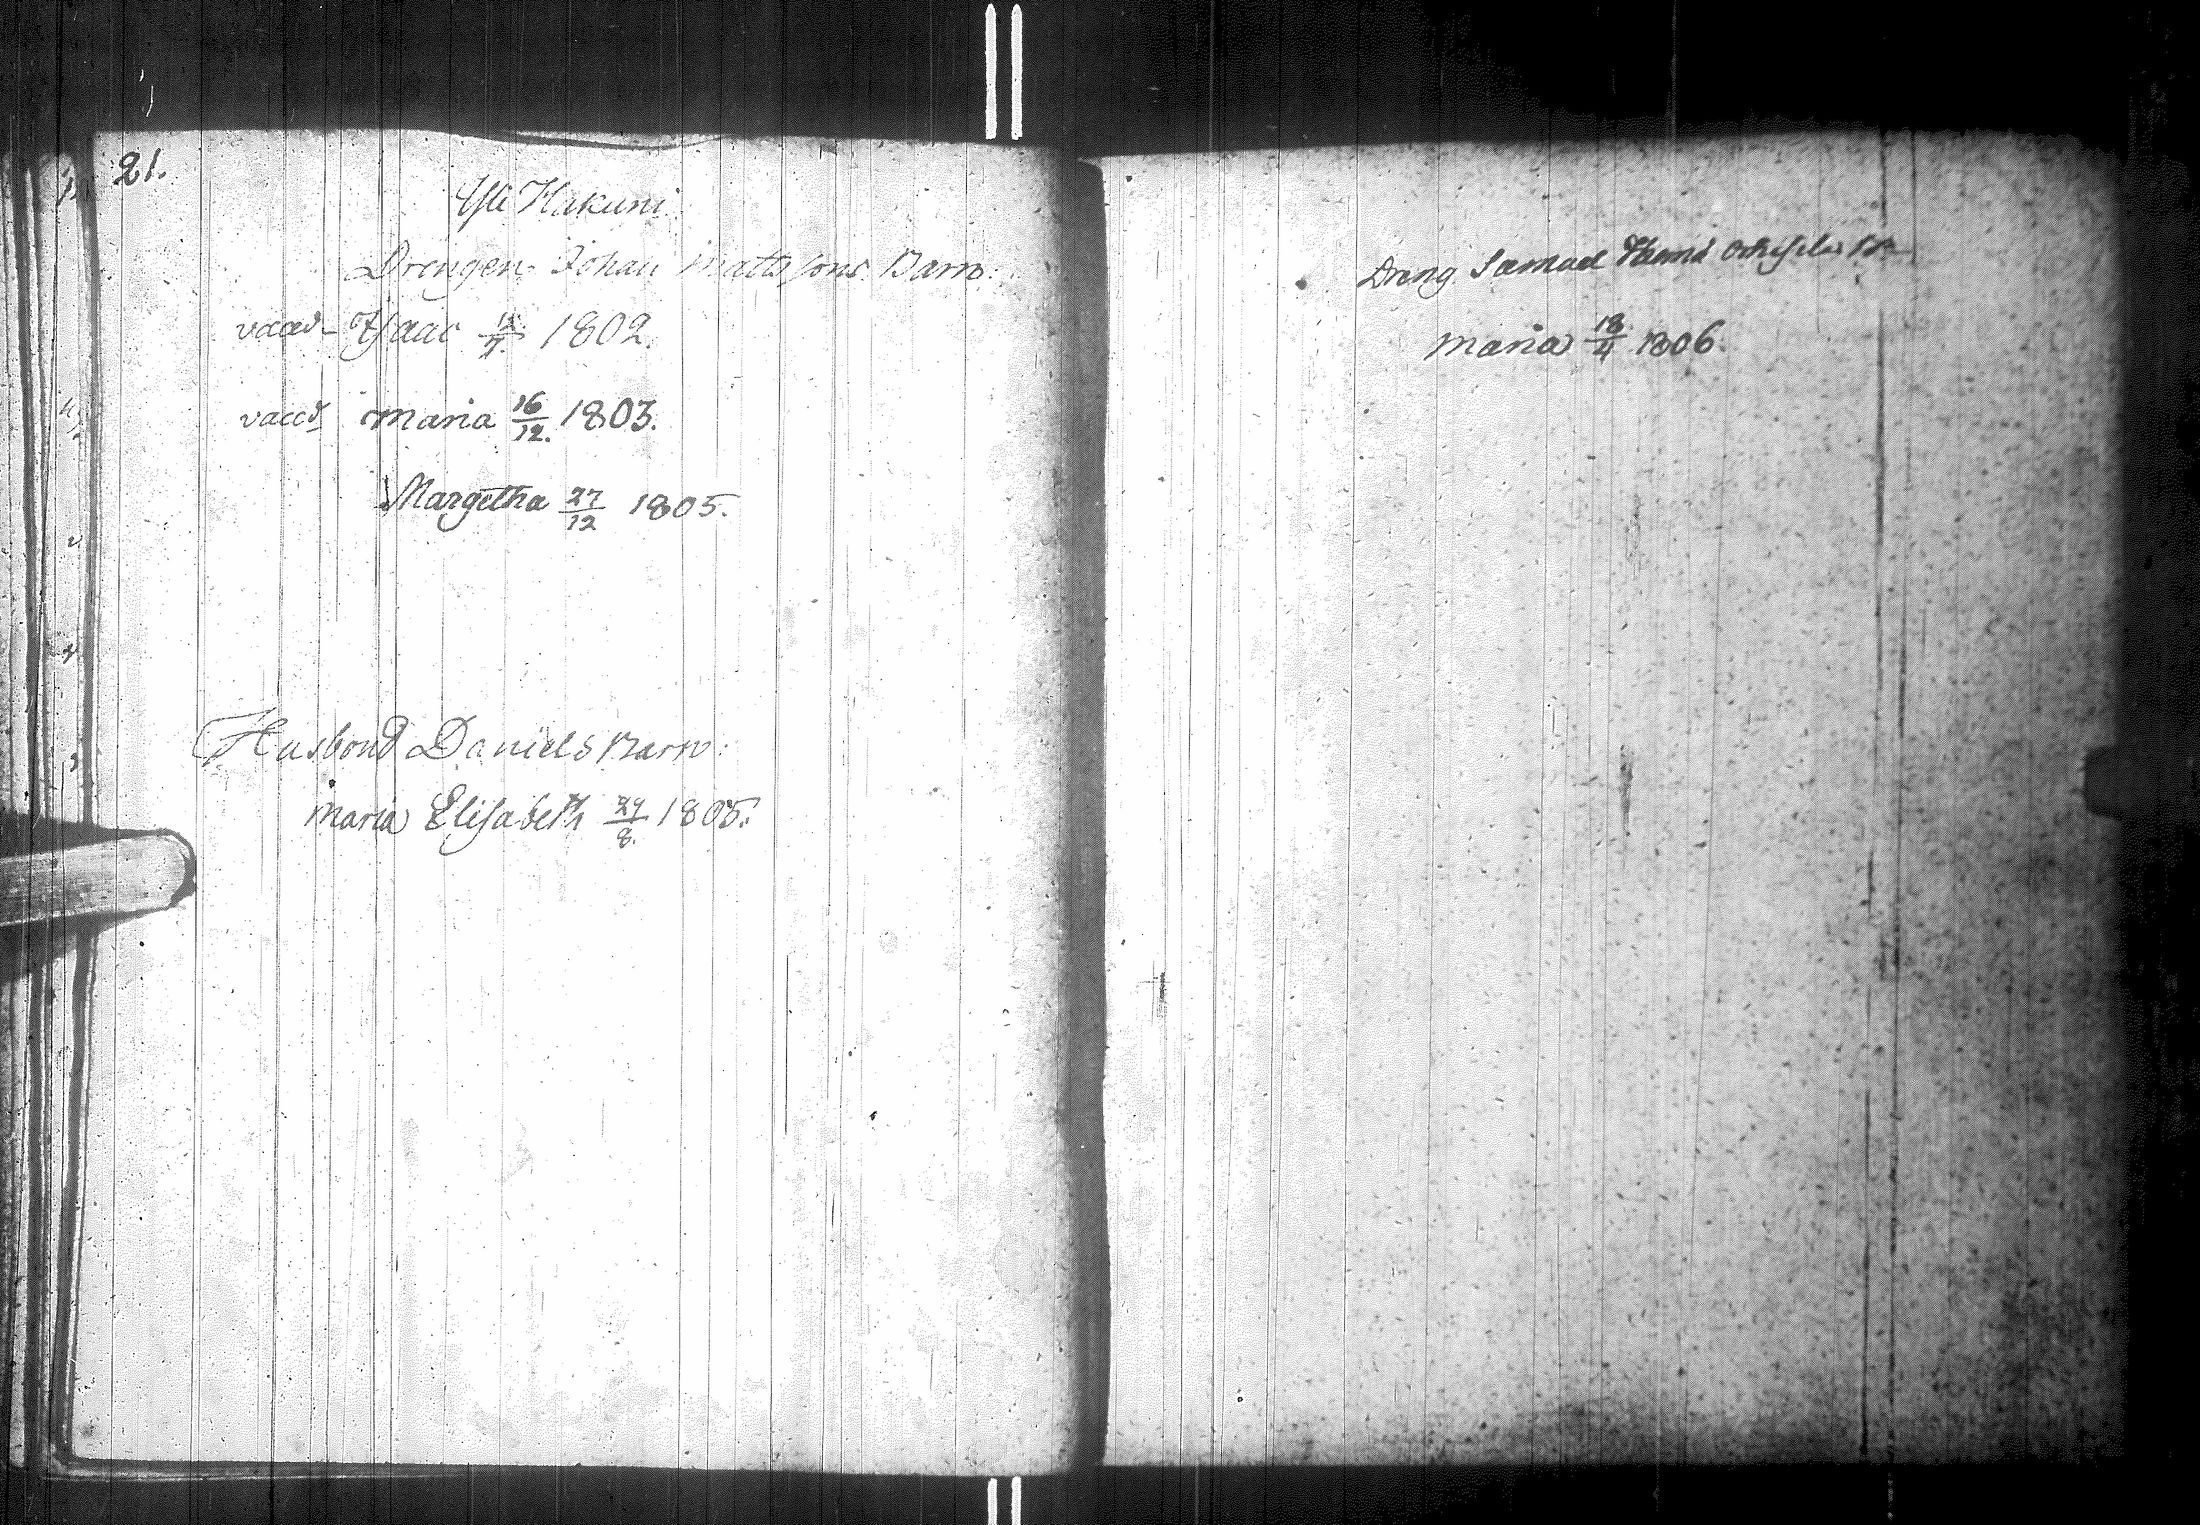 21.
Yli Hakuni
Drengen Johan Mattssons Barn:
vacc. Isaac 1802.
vacc. Maria 16/12. 1803.
Margetha 27/12 1805.
Husbond Daniels Barn:
Maria Elisabeth 29/8. 1805.
Dreng Samuel
Maria 18/4 1806.